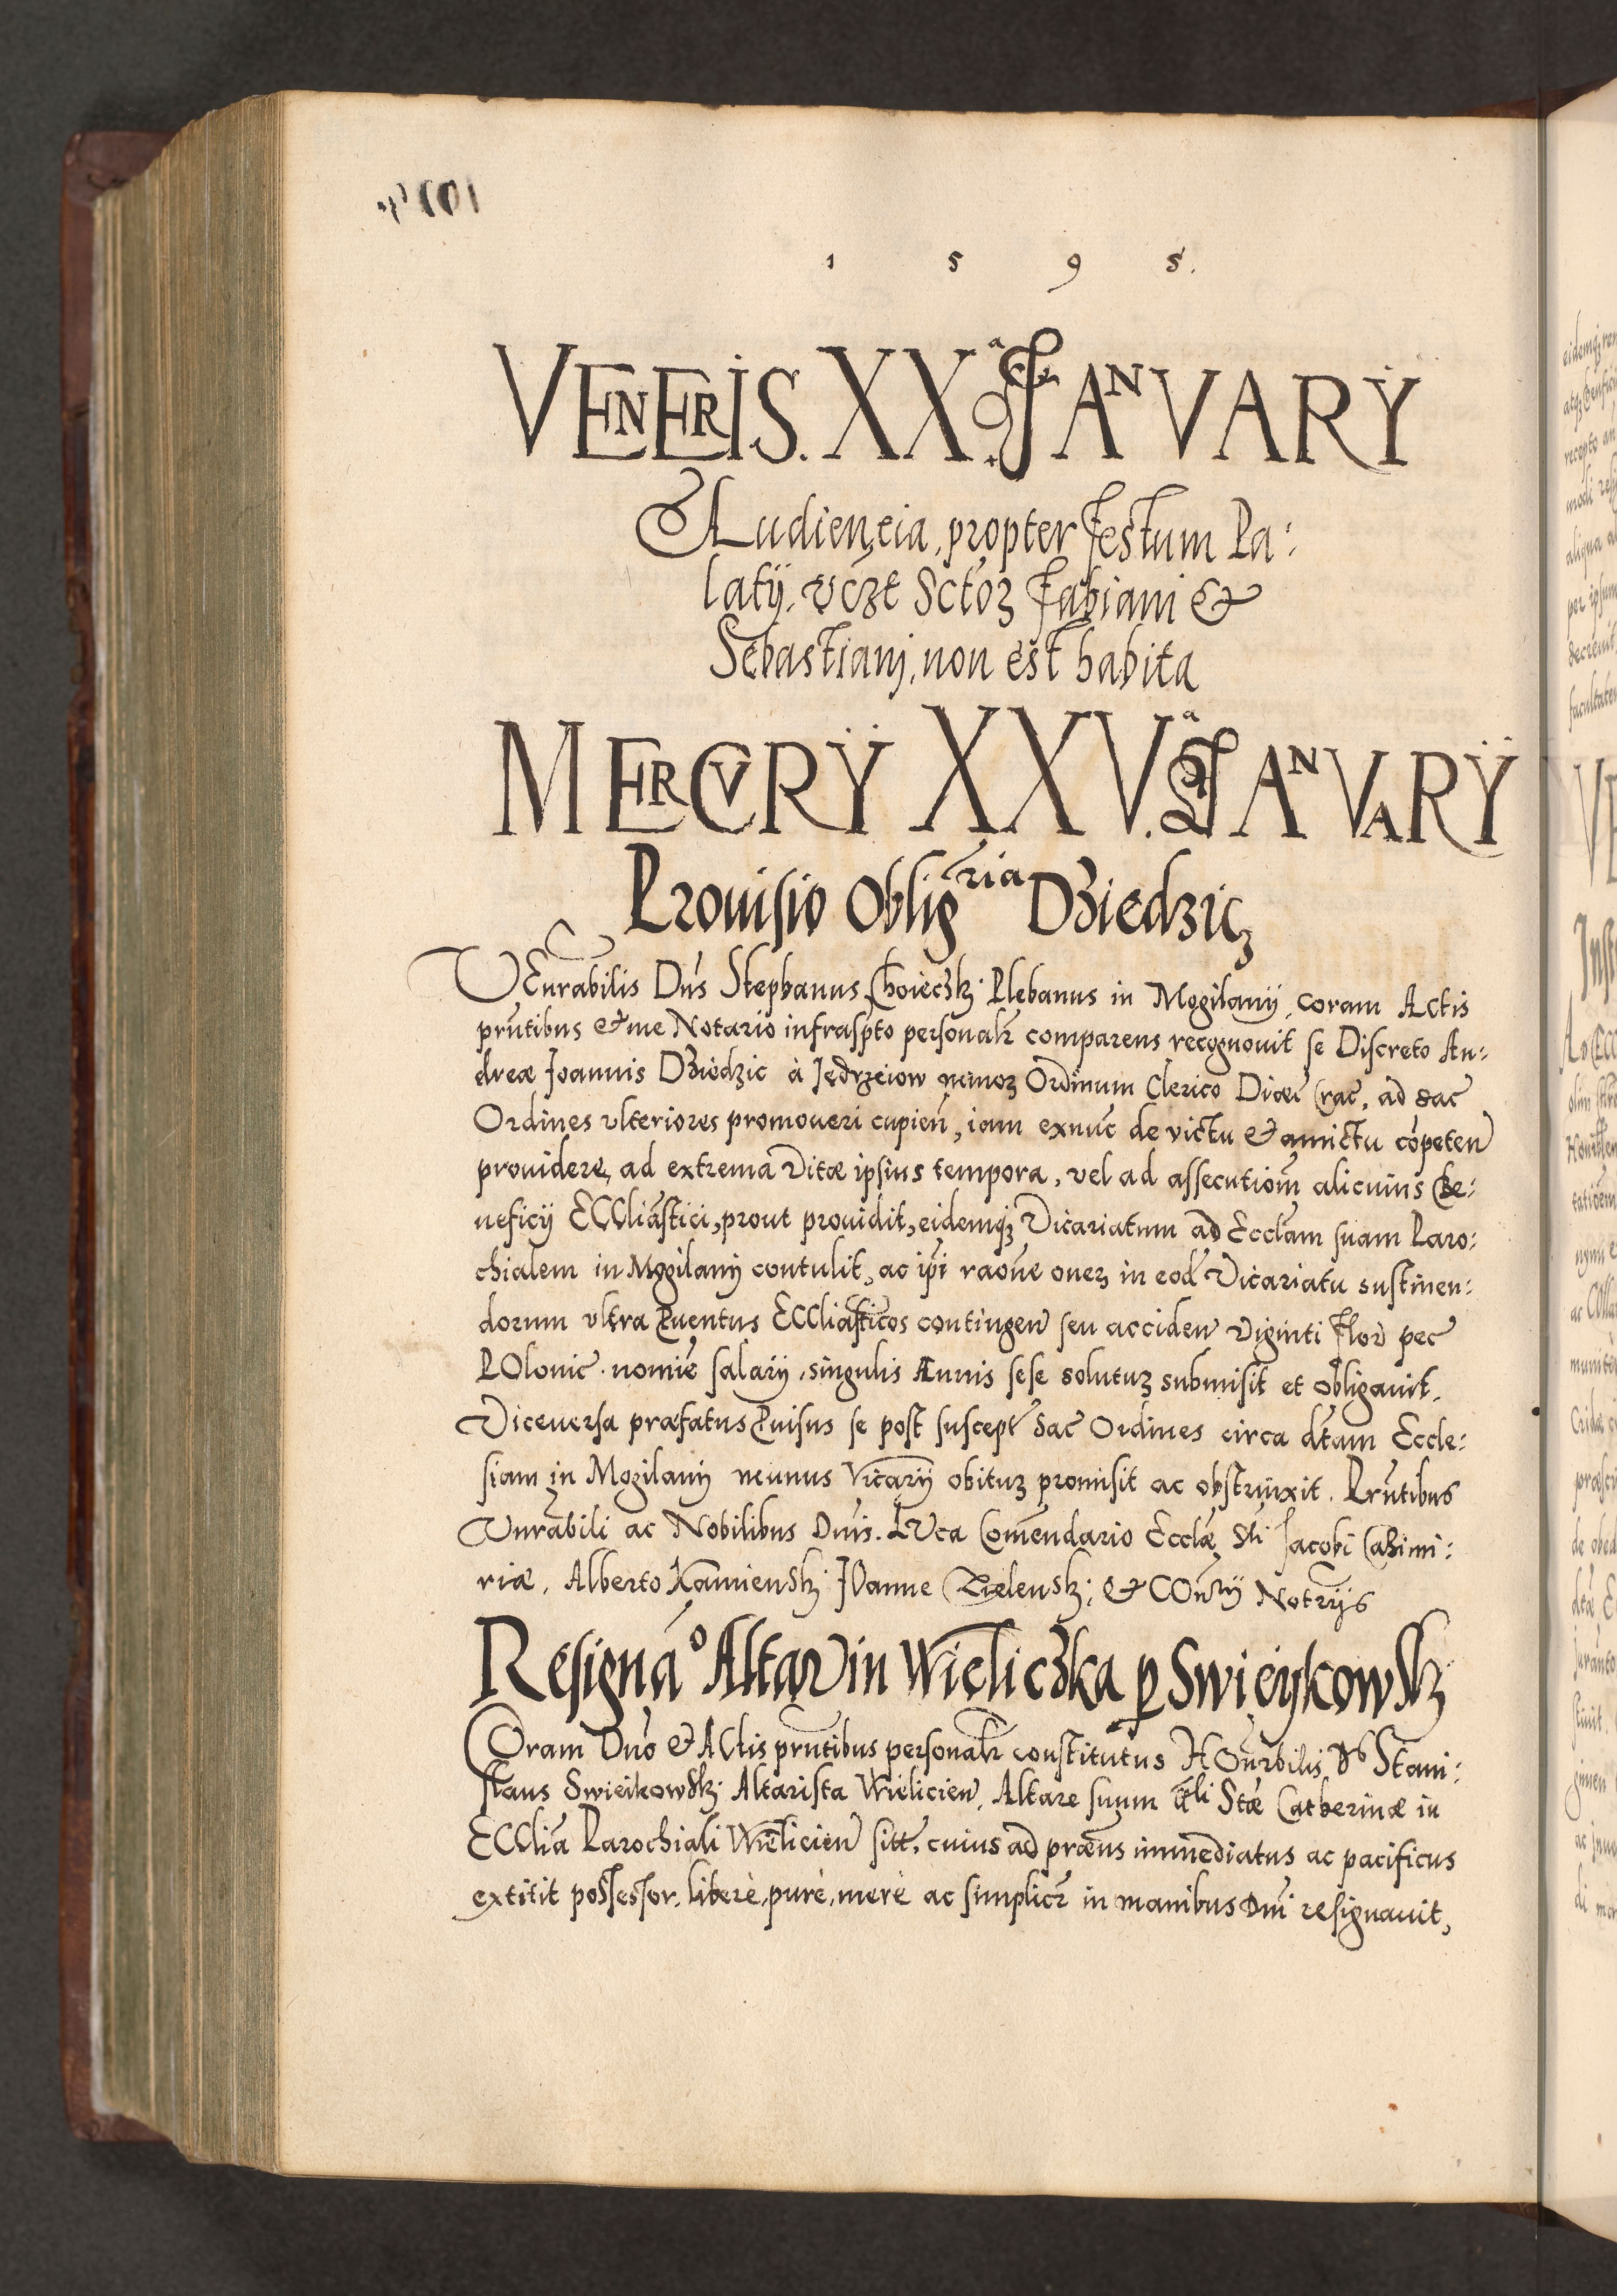 1 5 9 5.
VENERIS. XX.a IANVARY
Audiencia, propter festum Pa:
latij, vczt Sctoz Fabiani &
Sebastiani, non est habita
MERCVRY XXV.a IANVARY
Prouisio Obligria Dziedzicz
VEnrabilis Dns Stephanus Choieczk: Plebanus in Mogilany, coram Actis
prntibus & me Notario infraspto personalr comparens recognouit se Discreto An:
dreæ Joannis Dziedzic à Jędrzeiow minoz Ordinum Clerico Dioec Crac, ad sac
Ordines vlteriores promoueri cupien, iam exnuc de victu & amictu copeten
prouidere, ad extrema vitæ ipsius tempora, vel ad assecutiom alicuius Be:
neficij ECCliastici, prout prouidit, eidemq3 Vicariatum ad Ecclam suam Paro:
chialem in Mogilany contulit, ac ipi raone onez in eod Vicariatu sustinen:
dorum vltra Puentus ECCliasticos contingen seu acciden viginti Flor pec
POlonic. nomie salarij, singulis Annis sese solutuz submisit et obligauit.
Viceuersa præfatus Puisus se post suscept Sac Ordines circa dtam Eccle:
siam in Mogilany munus Vicarij obituz promisit ac obstrinxit. Prntibus
Vnrabili ac Nobilibus Dnis. LVca Comendario Ecclæ Sti Jacobi Cazimi:
riæ, Alberto Kamiensk: JOanne Bielensk: & COnrij Notrijs
Resignao Altar in Wieliczka p Swieykowsk
COram Dno & ACtis prntibus personalr constitutus HOnrbilis Ds Stani:
slaus Swieikowsk: Altarista Wielicien, Altare suum tli Stæ Catherinæ in
ECClia Parochiali Wielicien sitt, cuius ad præns immediatus ac pacificus
extitit possessor, liberè, purè, merè ac simplicr in manibus Dni resignauit,